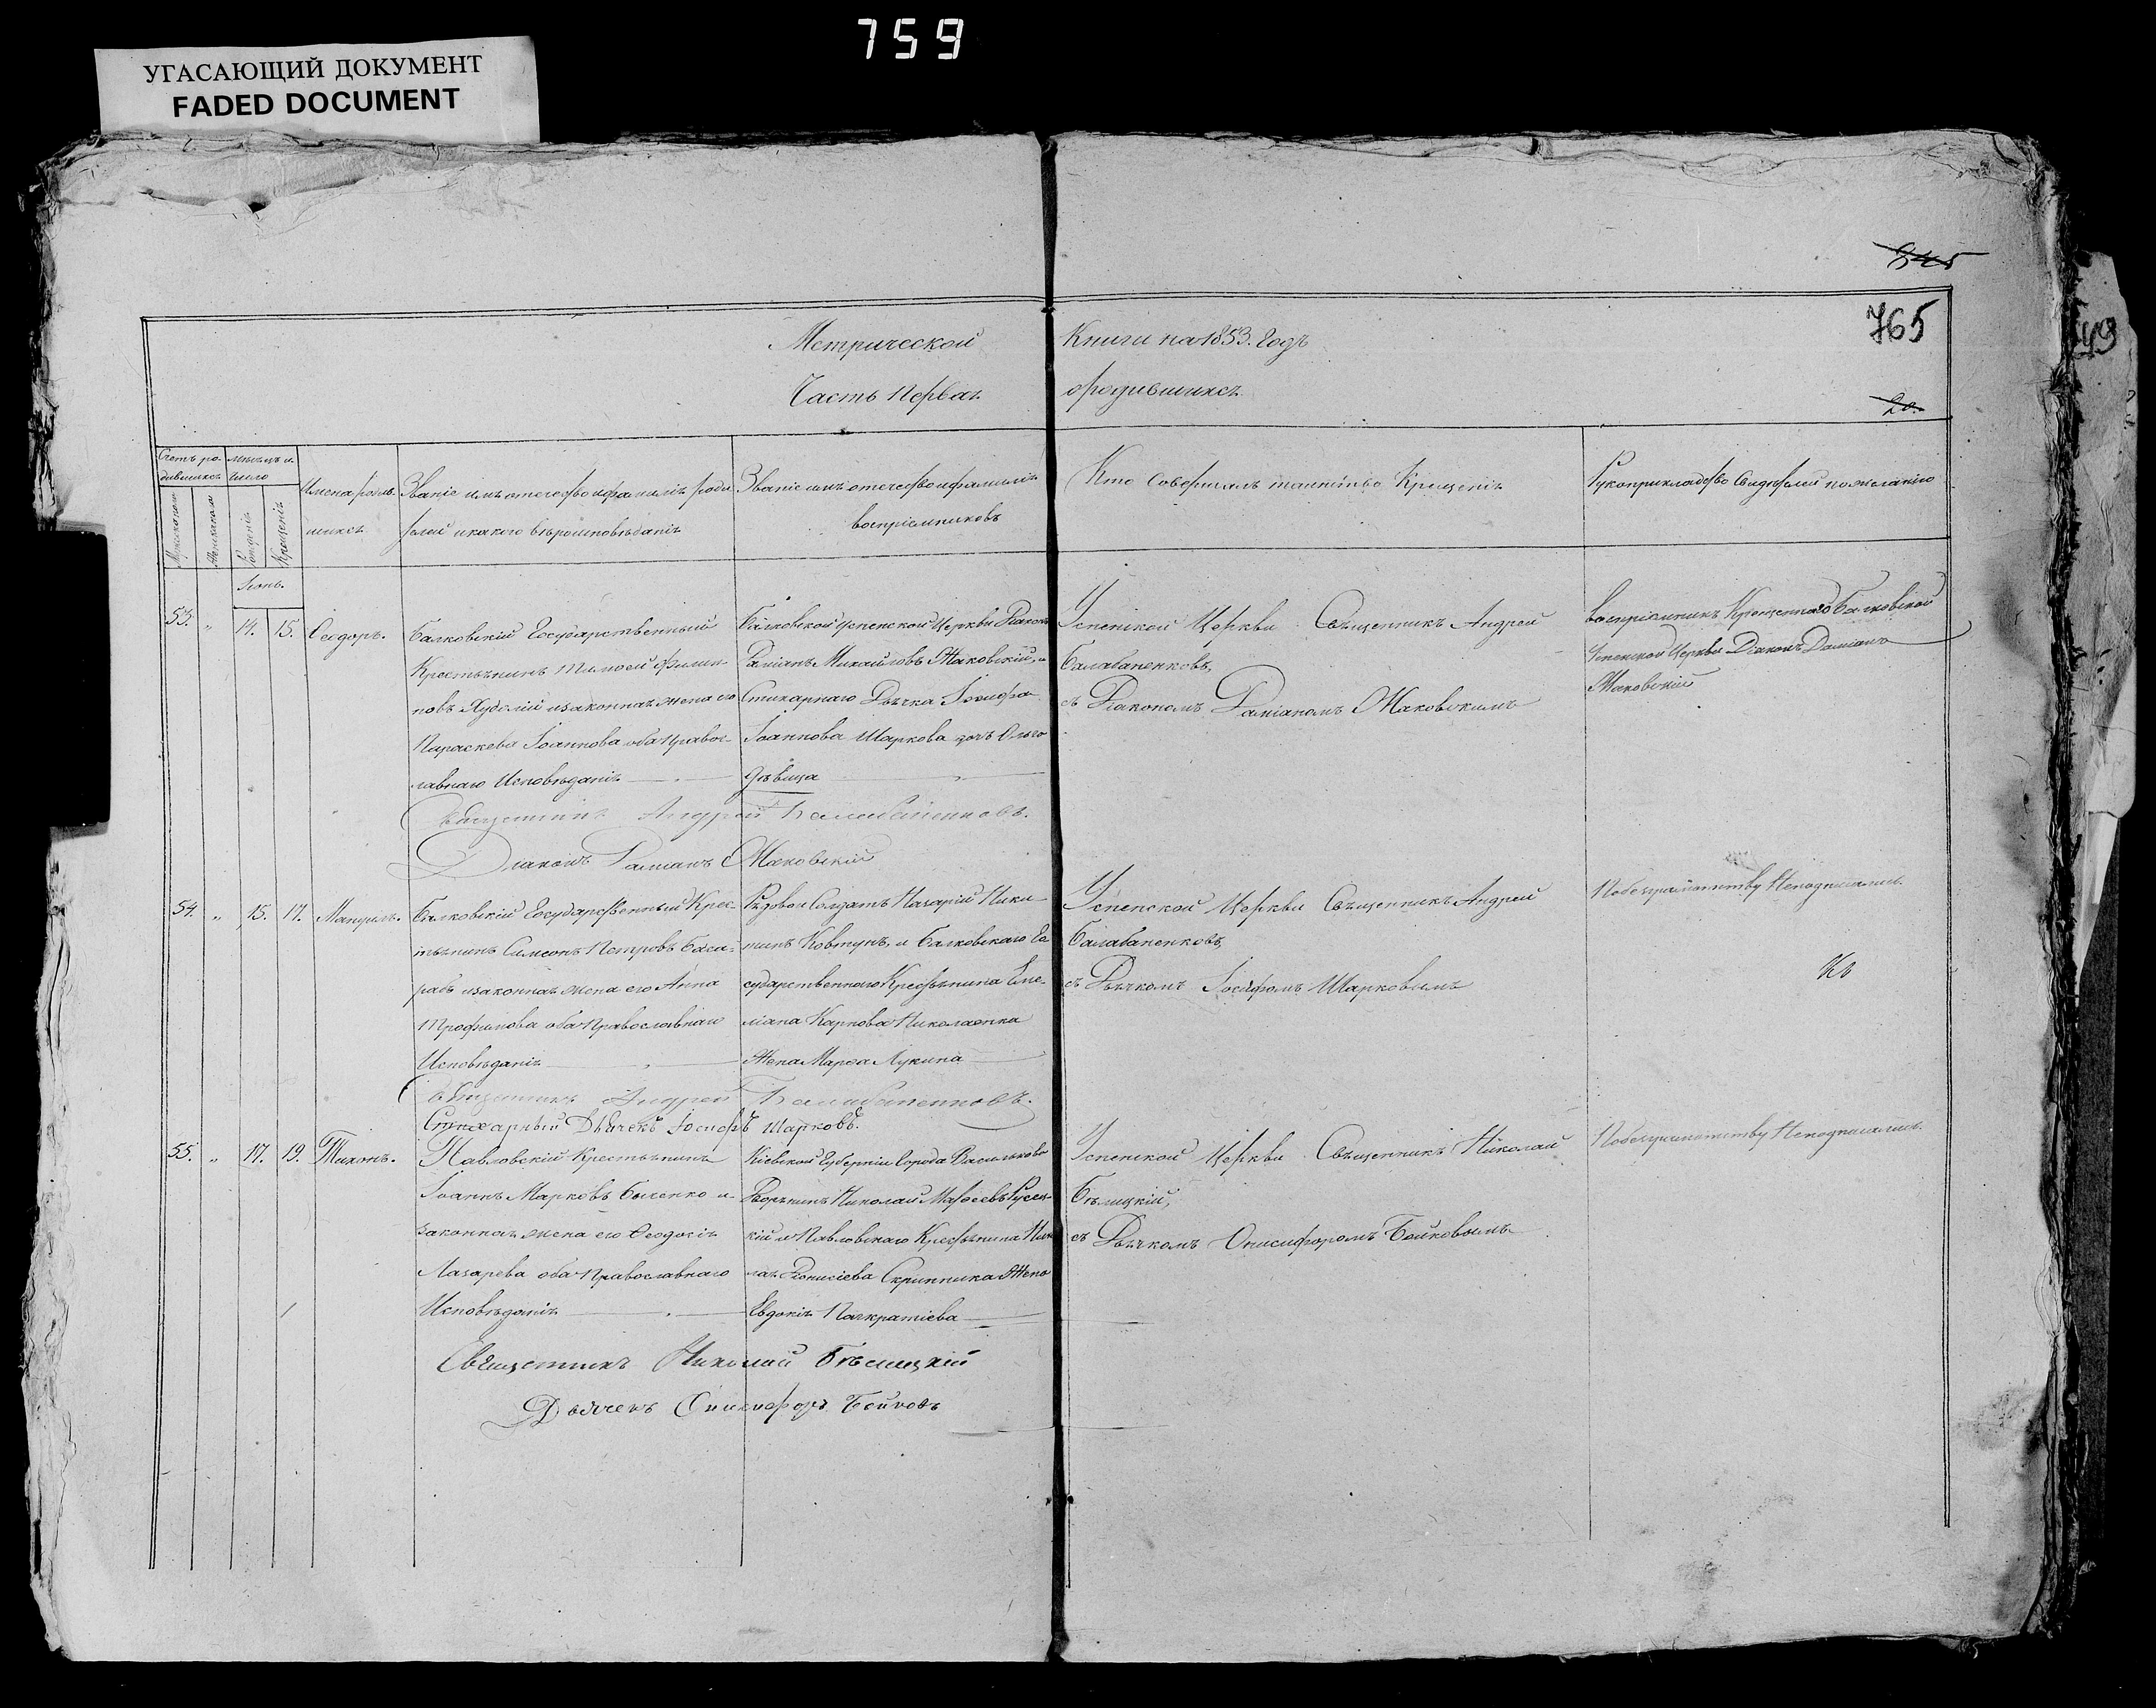 759
УГАСАЮЩИЙ ДОКУМЕНТ
FADED DOCUMENT
845
765
49
Метрической Книги на 1853. Годъ
Часть Первая орадившихся
20.
Счетъ ро-
дившихся
Мѣсяцъ и
число
Мужеска пола
Женска пола
Рожденія
Крещенія
Имена родив-
шихся
Званіе имя отечество и фамилія роди
телей и какого вѣроисповѣданія
Званіе имя отечество и фамилія
воспріемниковъ
Кто совершалъ таинство Крещенія
Рукоприкладство свидѣтелей по желанію
53. " 14. 15. Ѳеодоръ.
Балковскій Государственный
Крестьянинъ Тимоѳей Филип-
повъ Худолій и законная жена его
Параскева Іоаннова оба Правос-
лавнаго Исповѣданія
Балковской Успенской Церкви Діаконъ
Даміанъ Михайловъ Маковскій, и
Стихарнаго Дьячка Іосифа
Іоаннова Шаркова дочь Ольга
дѣвица
Успенской Церкви Священникъ Андрей
Балабаненковъ,
съ Діакономъ Даміаномъ Маковскимъ
Воспріемникъ Крещеннаго Балковской
Успенской Церкви Діаконъ Даміанъ
Маковскій
Священникъ Андрей Балабаненковъ.
Діаконъ Даміанъ Маковскій
54. " 15. 17. Мануилъ.
Балковскій Государственный Крес-
тьянинъ Самсонъ Петровъ Баса-
рабъ и законная жена его Анна
Трофимова оба Православнаго
Исповѣданія
Рядовой Солдатъ Назарій Ники-
тинъ Ковтунъ, и Балковскаго Го
сударственнаго Крестьянина Еме-
ліана Карпова Николаенка
Жена Марѳа Лукина
Успенской Церкви Священникъ Андрей
Балабаненковъ,
съ Дьячкомъ Іосифомъ Шарковымъ
По безграмотству Неподписались.
Священникъ Андрей Балабаненковъ.
Стихарный Дьячекъ Іосифъ Шарковъ.
55. " 17. 19. Тихонъ.
Павловскій Крестьянинъ
Іоаннъ Марковъ Быченко и
законная жена его Ѳеодосія
Лазарева оба Православнаго
Исповѣданія
Кіевской Губерніи Города Василькова
Дворянинъ Николай Матѳеевъ Русец-
кій и Павловскаго Крестьянина
Діонисіева Скрипника Жена
Евдокія Панкратіева
Успенской Церкви Священникъ Николай
Бѣлицкій,
съ Дьячкомъ Онисифоромъ Бойковымъ
По безграмотству Неподписались.
Священникъ Николай Бѣлицкій
Дьячекъ Онисифоръ Бойковъ